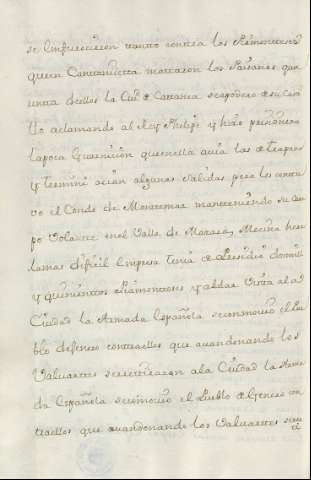 se enfurecieron tanto contra los Piemonteses
que en Cantanicetta mataron los Paisanos
una de ellos la Ciud. de Catanea se apodero de su Casti
llo aclamando al Rey Phelipe y hizo prisionera
la poca Guarnicion que en ella avia las de Trapana
y Termini acian algunas salidas pero los contu
vo el Conde de Montemar manteniendo su Cam
po Volante en el Valle de Mazara, Mecina hera
la mas dificil empresa tenia de Presidio dos mill
y quinientos Piamonteses y al dar vista al a
Ciudad la Armada Española se conmovio el Pue
blo defenso contra ellos que avandonando los
Valuartes se retiraron a la Ciudad la Arma
da Española se comovio el Pueblo de Genero con
tra ellos que avandonando los Valuartes